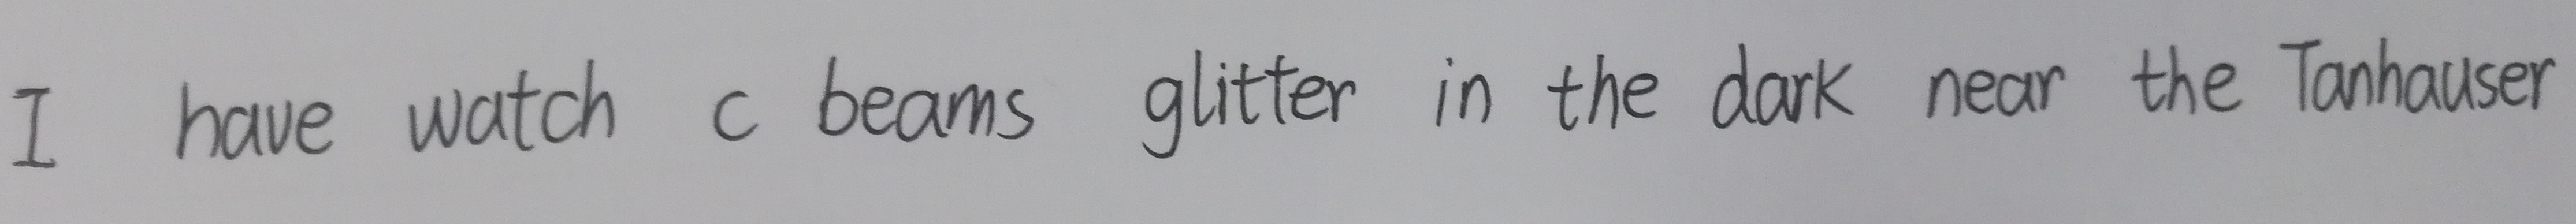 I have watch c beams glitter in the dark near the Tanhauser